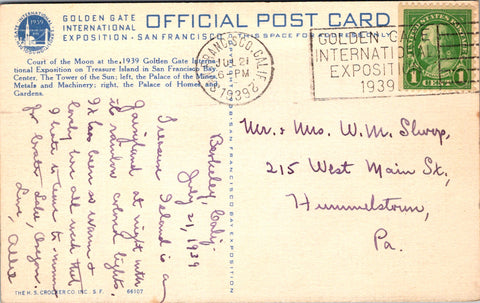 GOLDEN GATE
INTERNATIONAL
EXPOSITION - SAN FRANCISCO
1939
OFFICIAL POST CARD
THIS SPACE FOR
Court of the Moon at the 1939 Golden Gate Interna-
tional Exposition on Treasure Island in San Francisco Bay.
Center, The Tower of the Sun; left, the Palace of the Mines,
Metals and Machinery; right, the Palace of Homes and
Gardens.
SAN FRANCISCO, CALIF.
JUL 21
6-PM
1939
GOLDEN GATE
INTERNATIONAL
EXPOSITION
1939
UNITED STATES POSTAGE
1 CENT 1
Berkeley, Calif.
July 21, 1939
Treasure Island is a
fairyland at night with
its rainbow colored lights.
It has been so warm &
lovely here all week that
I hate to leave to-morrow
for Crater Lake, Oregon.
Love, Allie
Mr. & Mrs. W. M.
215 West Main St.,
Hummelstown,
Pa.
BY SAN FRANCISCO BAY EXPOSITION
THE H. S. CROCKER CO. INC. S. F.
66107